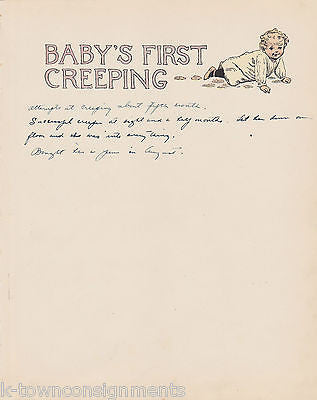 BABY'S FIRST
CREEPING
attempts at creeping about fifth month.
Successful creeper at eight and a half months. Let her down on
floor and she was into everything.
Bought her a pen in August.
k-townconsignments